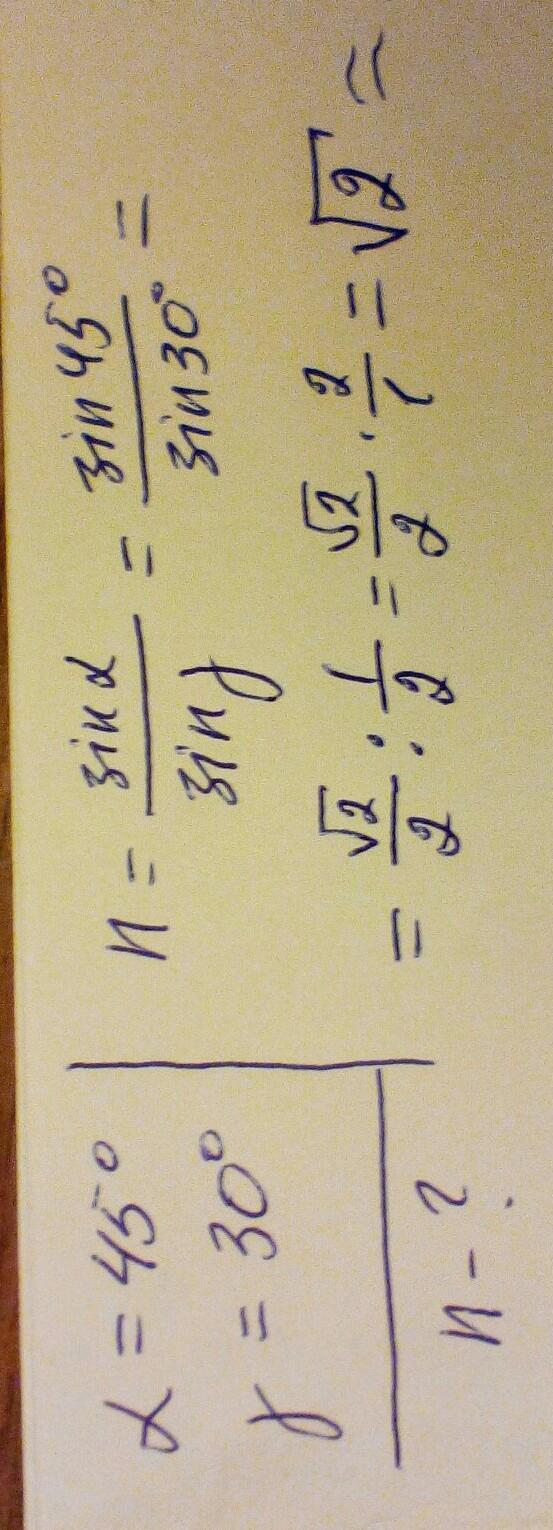 α = 45°
γ = 30°
n - ?
n = sin α / sin γ = sin 45° / sin 30° =
= √2/2 : 1/2 = √2/2 · 2/1 = √2 =